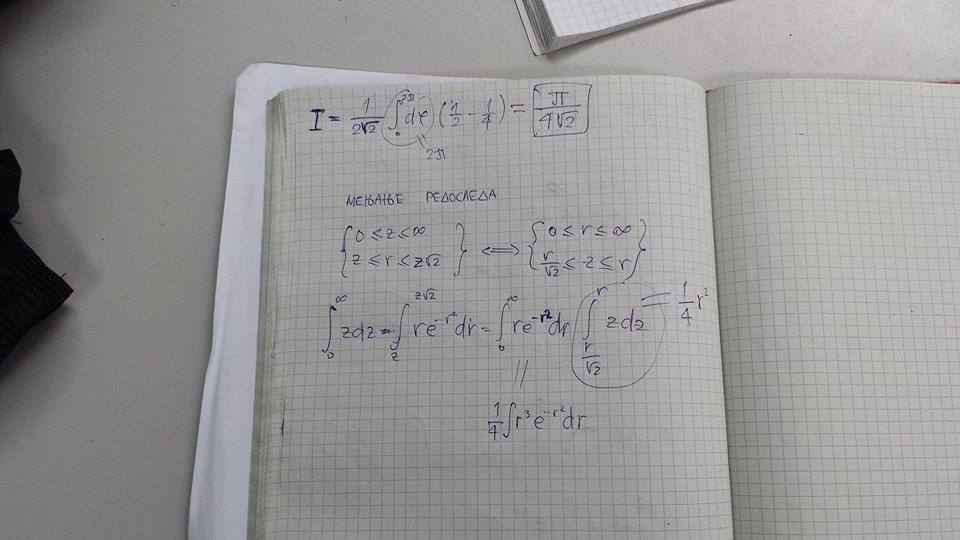 I = 1/(2√2) ∫₀^{2π} dφ (1/2 − 1/4) = π/(4√2)
2π
МЕЊАЊЕ РЕДОСЛЕДА
{0 ≤ z ≤ ∞ } ⟺ {0 ≤ r ≤ ∞ }
{z ≤ r ≤ z√2} {r/√2 ≤ z ≤ r}
∫₀^∞ zdz ∫_z^{z√2} re^{-r²}dr = ∫₀^∞ re^{-r²}dr ∫_{r/√2}^r zdz = 1/4 r²
||
1/4 ∫r³e^{-r²}dr